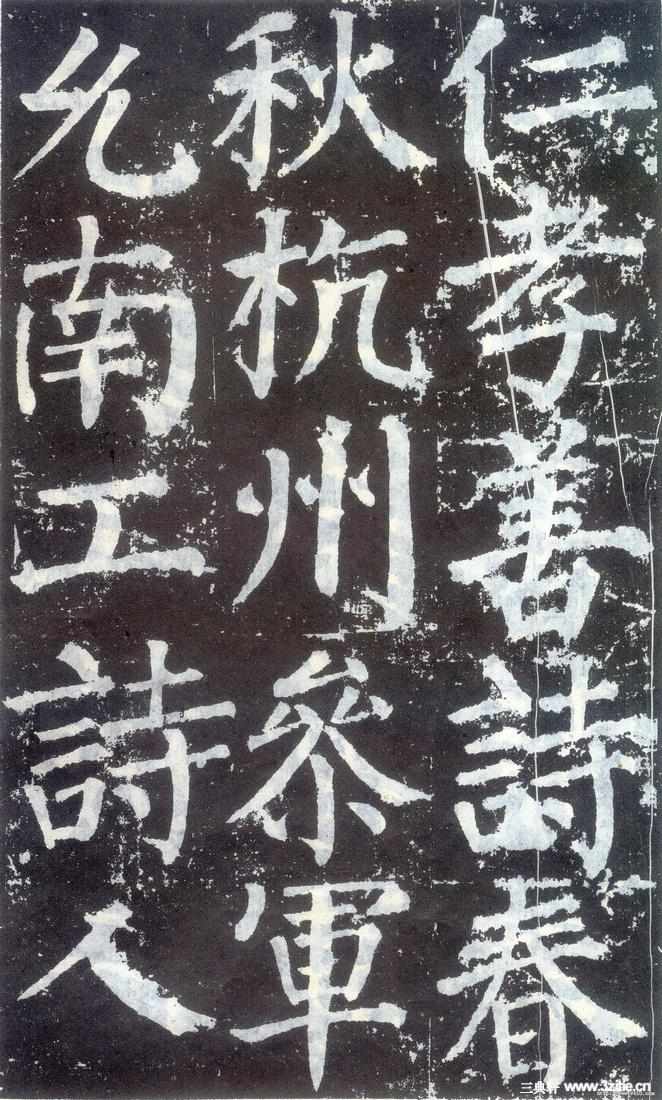 仁孝善詩春
秋杭州參軍
允南工詩人
三典轩 www.3zitie.cn